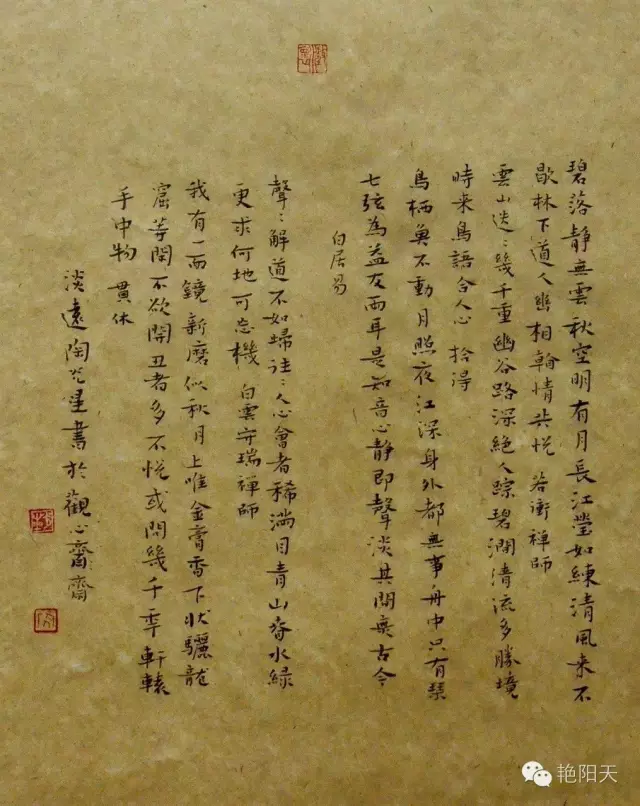 碧落靜無雲秋空明有月長江瑩如練清風来不
歇林下道人幽相翰情共悅 若衝禅師
雲山迭〻幾千重幽谷路深絕人踪碧澗清流多勝境
時来鳥語合人心 拾得
鳥栖奐不動月照夜江深身外都無事舟中只有琹
七弦為益友兩耳是知音心靜即聲淡其間無古今
白居易
聲〻解道不如歸往〻人心會者稀滿目青山春水緑
更求何地可忘機 白雲守瑞禅師
我有一面鏡新磨似秋月上唯金膏香下状驪龍
窟等閑不欲開丑者多不悅或問幾千年軒轅
手中物 貫休
淡遠陶光星書於觀心齋齋
艳阳天